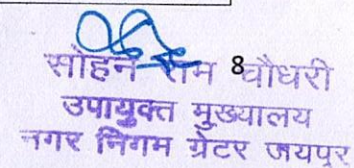 सोहन राम चौधरी
8
उपायुक्त मुख्यालय
नगर निगम ग्रेटर जयपुर